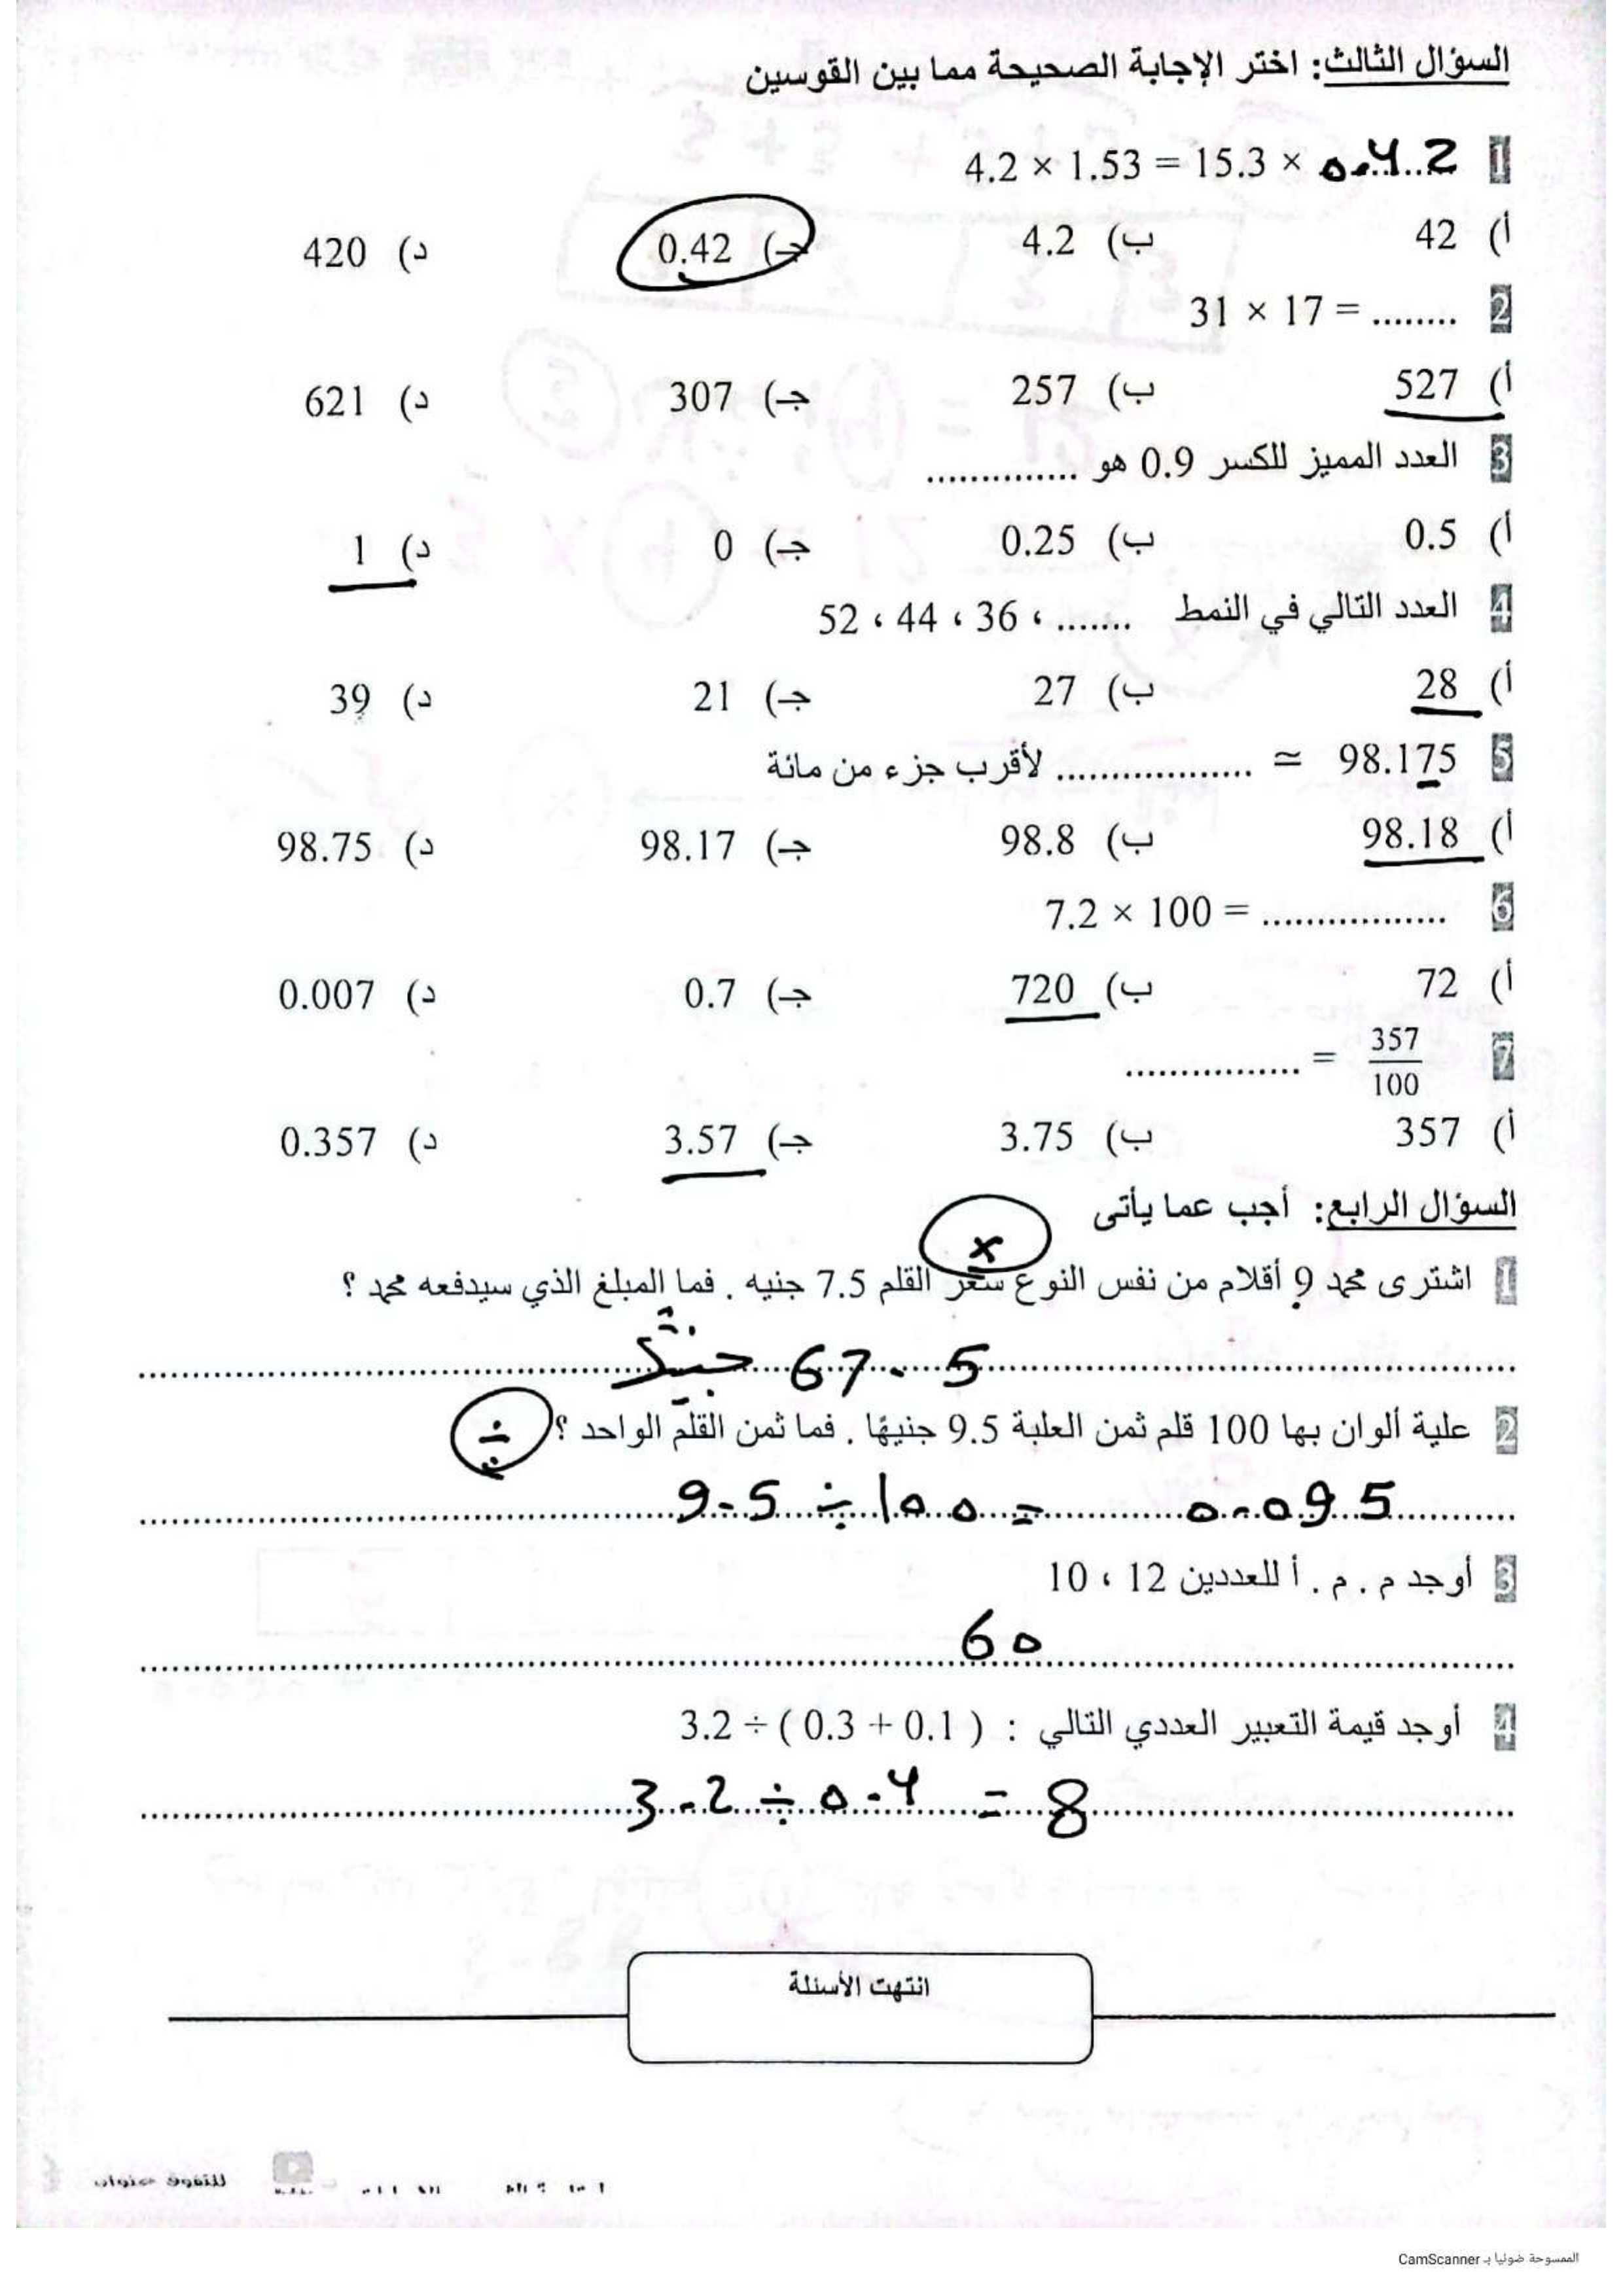 السؤال الثالث: اختر الإجابة الصحيحة مما بين القوسين
1 4.2 × 1.53 = 15.3 × 0.42
أ) 42 ب) 4.2 جـ) 0.42 د) 420
2 31 × 17 = ........
أ) 527 ب) 257 جـ) 307 د) 621
3 العدد المميز للكسر 0.9 هو ..............
أ) 0.5 ب) 0.25 جـ) 0 د) 1
4 العدد التالي في النمط 52 ، 44 ، 36 ، .......
أ) 28 ب) 27 جـ) 21 د) 39
5 98.175 ≃ .................. لأقرب جزء من مائة
أ) 98.18 ب) 98.8 جـ) 98.17 د) 98.75
6 7.2 × 100 = .................
أ) 72 ب) 720 جـ) 0.7 د) 0.007
7 357/100 = ................
أ) 357 ب) 3.75 جـ) 3.57 د) 0.357
السؤال الرابع: أجب عما يأتى
×
1 اشترى محمد 9 أقلام من نفس النوع سعر القلم 7.5 جنيه . فما المبلغ الذي سيدفعه محمد ؟
67.5 جنيه
2 علية ألوان بها 100 قلم ثمن العلبة 9.5 جنيهًا . فما ثمن القلم الواحد ؟ ÷
9.5 ÷ 100 = 0.095
3 أوجد م . م . أ للعددين 12 ، 10
60
4 أوجد قيمة التعبير العددي التالي : 3.2 ÷ ( 0.3 + 0.1 )
3.2 ÷ 0.4 = 8
انتهت الأسئلة
الممسوحة ضوئيا بـ CamScanner